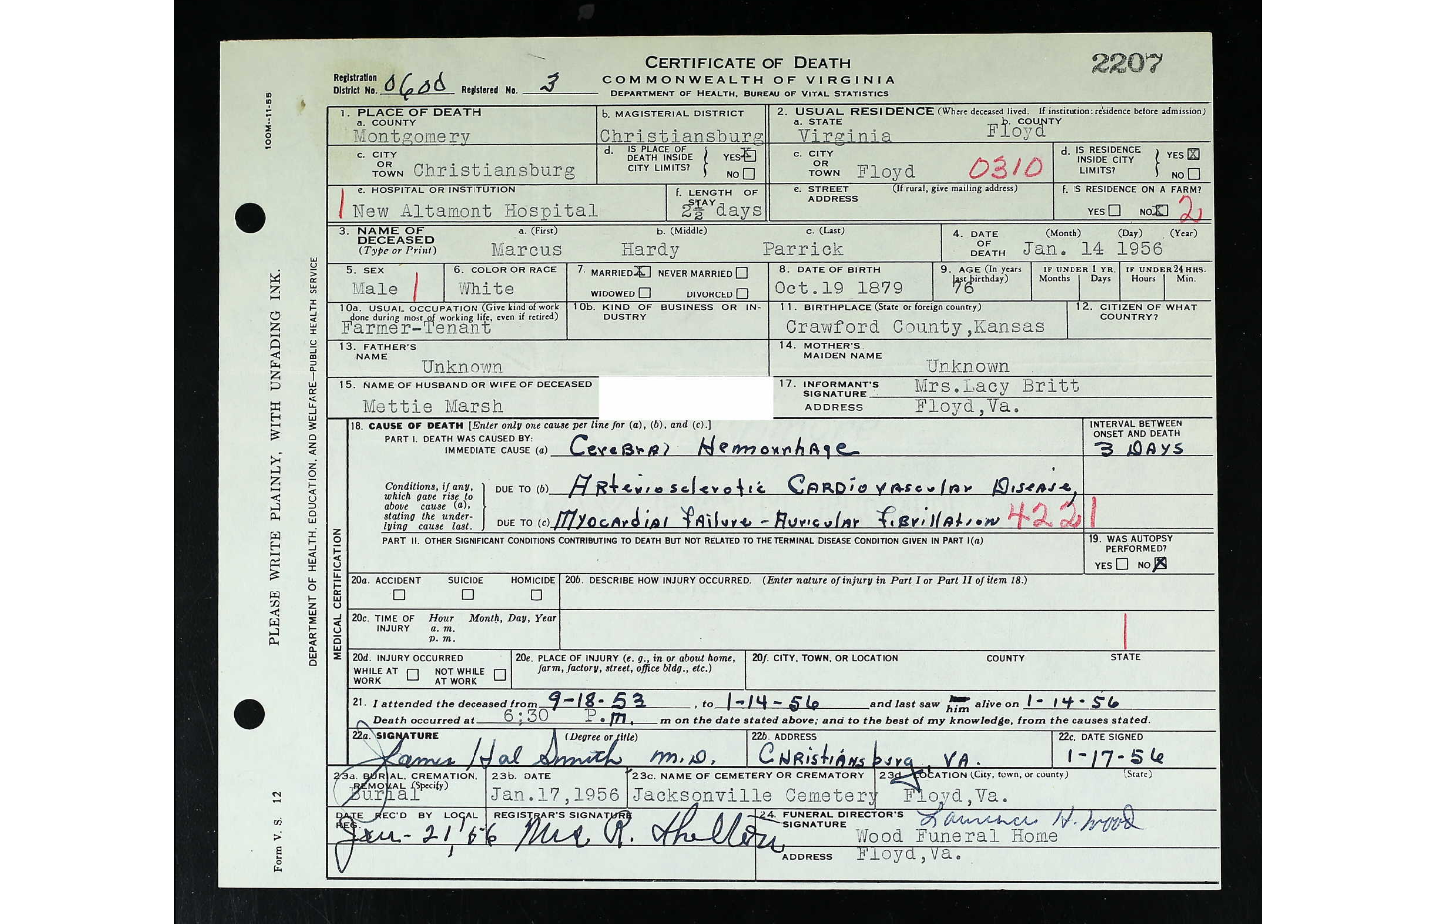 CERTIFICATE OF DEATH
2207
COMMONWEALTH OF VIRGINIA
DEPARTMENT OF HEALTH, BUREAU OF VITAL STATISTICS
Registration District No. 0600 Registered No. 3
100M—11-55
1. PLACE OF DEATH
a. COUNTY
Montgomery
b. MAGISTERIAL DISTRICT
Christiansburg
2. USUAL RESIDENCE (Where deceased lived. If institution: residence before admission)
a. STATE
Virginia
b. COUNTY
Floyd
c. CITY OR TOWN Christiansburg
d. IS PLACE OF DEATH INSIDE CITY LIMITS? YES NO
c. CITY OR TOWN Floyd 0310
d. IS RESIDENCE INSIDE CITY LIMITS? YES NO
e. HOSPITAL OR INSTITUTION
New Altamont Hospital
f. LENGTH OF STAY
2½ days
e. STREET ADDRESS (If rural, give mailing address)
f. IS RESIDENCE ON A FARM?
YES NO 2
3. NAME OF DECEASED (Type or Print)
a. (First) b. (Middle) c. (Last)
Marcus Hardy Parrick
4. DATE OF DEATH (Month) (Day) (Year)
Jan. 14 1956
5. SEX
Male
6. COLOR OR RACE
White
7. MARRIED NEVER MARRIED
WIDOWED DIVORCED
8. DATE OF BIRTH
Oct.19 1879
9. AGE (In years last birthday)
76
IF UNDER 1 YR. Months Days
IF UNDER 24 HRS. Hours Min.
10a. USUAL OCCUPATION (Give kind of work done during most of working life, even if retired)
Farmer-Tenant
10b. KIND OF BUSINESS OR INDUSTRY
11. BIRTHPLACE (State or foreign country)
Crawford County,Kansas
12. CITIZEN OF WHAT COUNTRY?
13. FATHER'S NAME
Unknown
14. MOTHER'S MAIDEN NAME
Unknown
15. NAME OF HUSBAND OR WIFE OF DECEASED
Mettie Marsh
17. INFORMANT'S SIGNATURE Mrs.Lacy Britt
ADDRESS Floyd,Va.
18. CAUSE OF DEATH [Enter only one cause per line for (a), (b), and (c).]
INTERVAL BETWEEN ONSET AND DEATH
PART I. DEATH WAS CAUSED BY:
IMMEDIATE CAUSE (a) Cerebral Hemorrhage
3 DAYS
Conditions, if any, which gave rise to above cause (a), stating the underlying cause last.
DUE TO (b) Arteriosclerotic Cardiovascular Disease,
DUE TO (c) Myocardial Failure - Auricular Fibrillation 4221
PART II. OTHER SIGNIFICANT CONDITIONS CONTRIBUTING TO DEATH BUT NOT RELATED TO THE TERMINAL DISEASE CONDITION GIVEN IN PART I(a)
19. WAS AUTOPSY PERFORMED?
YES NO
20a. ACCIDENT SUICIDE HOMICIDE
20b. DESCRIBE HOW INJURY OCCURRED. (Enter nature of injury in Part I or Part II of item 18.)
20c. TIME OF INJURY Hour Month, Day, Year
a. m.
p. m.
20d. INJURY OCCURRED
WHILE AT WORK NOT WHILE AT WORK
20e. PLACE OF INJURY (e. g., in or about home, farm, factory, street, office bldg., etc.)
20f. CITY, TOWN, OR LOCATION COUNTY STATE
21. I attended the deceased from 9-18-53, to 1-14-56 and last saw him alive on 1-14-56
Death occurred at 6:30 P.m. m on the date stated above; and to the best of my knowledge, from the causes stated.
22a. SIGNATURE (Degree or title)
James Hal Smith M.D.
22b. ADDRESS
Christiansburg, VA.
22c. DATE SIGNED
1-17-56
23a. BURIAL, CREMATION, REMOVAL (Specify)
Burial
23b. DATE
Jan.17,1956
23c. NAME OF CEMETERY OR CREMATORY
Jacksonville Cemetery
23d. LOCATION (City, town, or county) (State)
Floyd,Va.
DATE REC'D BY LOCAL REG.
Jan-21,'56
REGISTRAR'S SIGNATURE
Mrs R. Shelton
24. FUNERAL DIRECTOR'S SIGNATURE Lawrence H. Wood
Wood Funeral Home
ADDRESS Floyd,Va.
MEDICAL CERTIFICATION
DEPARTMENT OF HEALTH, EDUCATION, AND WELFARE—PUBLIC HEALTH SERVICE
PLEASE WRITE PLAINLY, WITH UNFADING INK.
Form V. S. 12